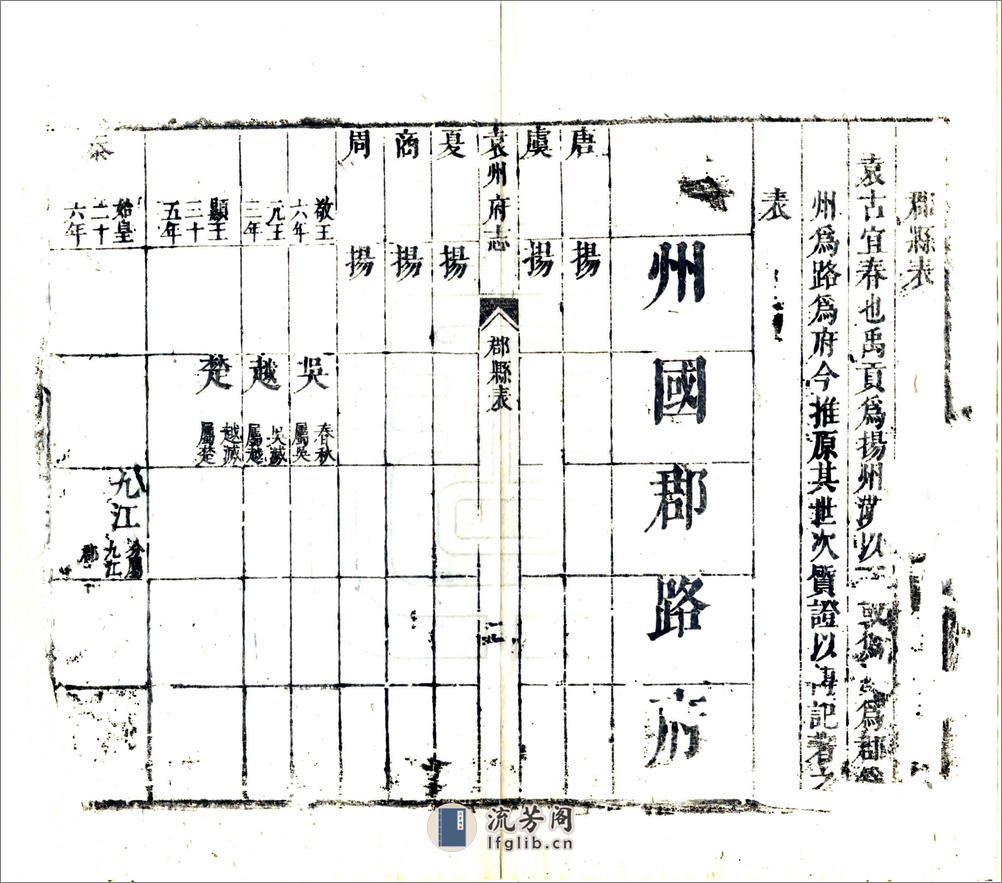 郡縣表
袁古宜春也禹貢爲揚州漢以 或爲 爲郡爲
州爲路爲府今推原其世次質證以傳記著之
表
州 國 郡 路 府
唐 揚
虞 揚
袁州府志 郡縣表
夏 揚
商 揚
周 揚
敬王六年 吳 春秋屬吳
元王三年 越 吳滅屬越
顯王三十五年 楚 越滅屬楚
秦 始皇二十六年 九江 分屬九江郡
流芳阁
lfglib.cn